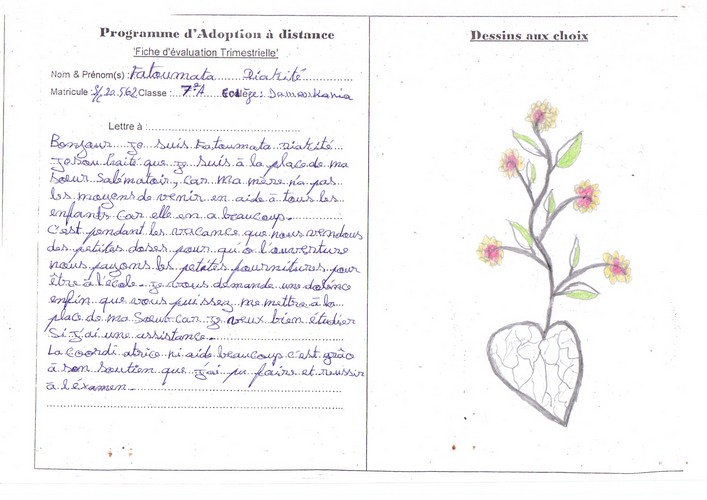 Programme d'Adoption à distance
'Fiche d'évaluation Trimestrielle'
Nom & Prénom(s) : Fatoumata Diakité
Matricule S/20.562 Classe : 7eA Collège : Damankania
Lettre à :
Bonjour je suis Fatoumata Diakité
je sou traité que je suis à la place de ma
soeur Salématoir, car ma mère n'a pas
les moyens de venir en aide à tous les
enfants car elle en a beaucoup.
C'est pendant les vacance que nous vendous
des petites doses pour qu'à l'ouverture
nous payons les petites fournitures pour
être à l'école. Je vous demande une dolénce
enfin que vous puissez me mettre à la
place de ma Soeur car je veux bien étudier
si j'ai une assistance.
La coordi atrice ni aide beaucoup c'est grâce
à son soutien que j'ai pu faire et reussir
à l'éxamen.
Dessins aux choix